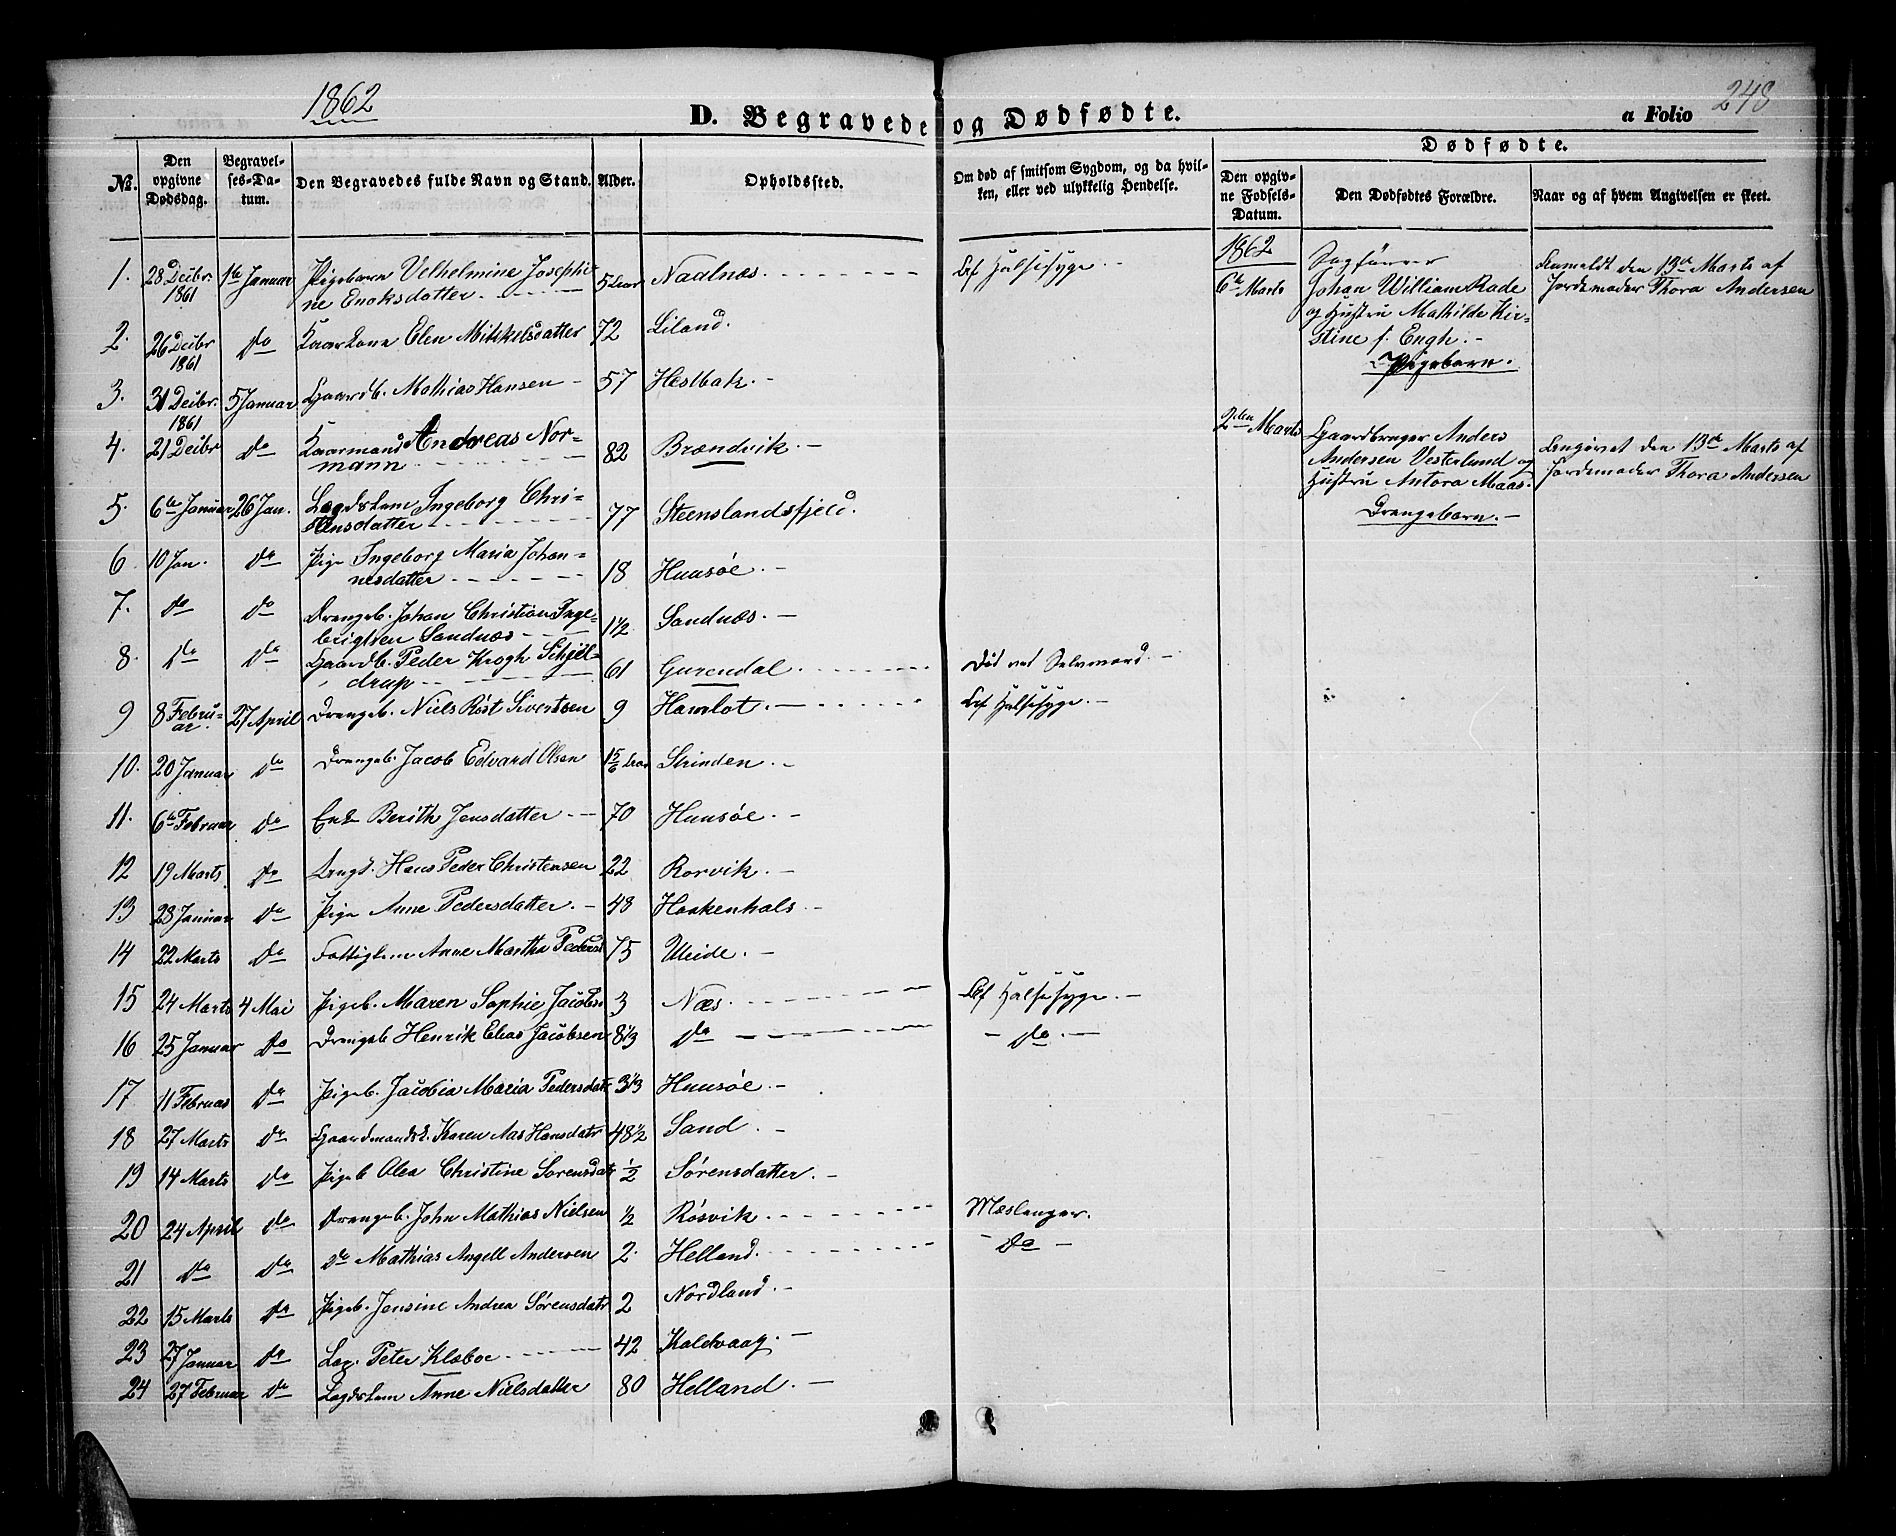 1862
D. Begravede og Dødfødte.
a Folio 248
Dødfødte.
No. Den opgivne Dødsdag. Begravelses-Datum. Den Begravedes fulde Navn og Stand. Alder. Opholdssted. Om død af smitsom Sygdom, og da hvilken, eller ved ulykkelig Hendelse. Den opgivne Fødsels-Datum. Den Dødfødtes Forældre. Naar og af hvem Angivelsen er skeet.
1. 28 Decbr. 1861 1ste Januar Pigebarn Vilhelmine Josephine Enoksdatter. 5 Naalnæs. Af Halssyge.
2. 26 Decbr 1861 Do Kaarkone Elen Mikkelsdatter 72 Liland.
3. 31 Decbr. 1861 5 Januar Gaardb. Mathias Hansen 57 Hestbak.
4. 21 Decbr Do Kaarmand Andreas Normann 82 Brændvik.
5. 6te Januar 26 Jan. Lægdslem Ingeborg Christensdatter 77 Steenslandsfjeld.
6 10 Jan. Do Pige Ingeborg Maria Johannesdatter 18 Huusøe.
7. Do Do Drengeb. Johan Christian Ingebrigtsen Sandnæs 1 1/2 Sandnæs.
8. Do Do Gaardb. Peder Krogh Schjeldrup 61 Gurendal Død ved Selvmord.
9 8 Februar. 27 April Drengeb. Niels Røst Sivertsen 9 Hamlot. Af Halssyge.
10. 20 Januar Do Drengeb. Jacob Edvard Olsen 1 5/6 Strinden.
11. 6te Februar Do Enke Berith Jensdatter 70 Huusøe.
12 19 Marts Do Hans Peder Christensen 22 Rorvik.
13 28 Januar Do Pige Anne Pedersdatter. 48 Haakenhals
14 22 Marts Do Fattiglem Anne Martha Pedersd 75 Uleide.
15 24 Marts 4 Mai Pigeb. Maren Sophie Jacobsd 3 Næs. Af Halssyge.
16 25 Januar Do Drengeb Henrik Elias Jacobsen 8 1/3 Do Do.
17 11 Februar Do Pigeb. Jacobia Maria Pedersdatr 3 1/3 Huusøe
18 27 Marts Do Gaardmandsk. Karen Aas Hansdatr 48 1/2 Sand.
19 14 Marts Do Pigeb Olea Christine Sorensdatr 1/2 Sørensdatter
20 24 April Do Drengeb. John Mathias Nielsen 1/2 Røsvik. Mæslinger.
21 Do Do Do Mathias Angell Andersen 2. Helland. Do
22 15 Marts Do Pigeb. Jensine Andrea Sørensdatr 2 Nordland.
23 27 Januar Do Peter Klæboe 42 Kaldvaag.
24 27 Februar Do Lægdslem Anne Nielsdatter 80 Helland.
1862
6te Marts
Sagfører
Johan William Rode
og Hustru Mathilde Kirstine f. Engh.
Pigebarn.
Anmeldt den 13de Marts af
Jordemoder Thora Andersen
2den Marts
Gaardbruger Anders
Andersen Vesterlund og
Hustru Antora Maas.
Drengebarn.
Angivet den 13de Marts af
Jordemoder Thora Andersen